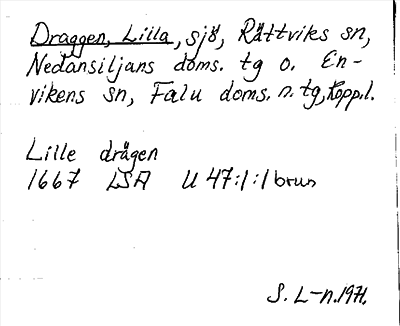 Draggen, Lilla, sjö, Rättviks sn,
Nedansiljans doms. tg o. En-
vikens sn, Falu doms. n. tg, Kopp.l.
Lille drågen
1667 LSA U 47:1:1 brun
S. L-n. 1971.